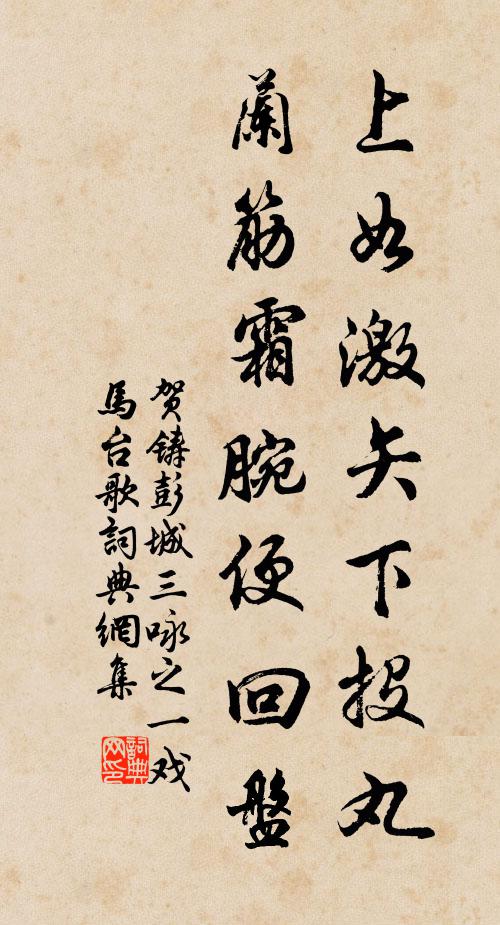 上如激矢下投丸
蘭筋霜腕便回盤
贺鑄彭城三咏之一戏
馬台歌詞典網集
詞典
网印